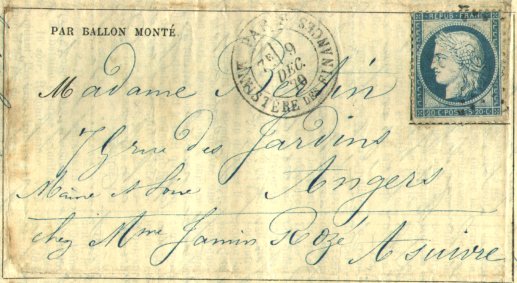 PAR BALLON MONTÉ
PARIS
MINISTÈRE DES FINANCES
7E
9
DEC.
70
REPUB. FRANC.
20 C. POSTES 20 C.
Madame
79 rue des Jardins
Angers
Maine et Loire
chez Mme Jamin Rozé
A suivre